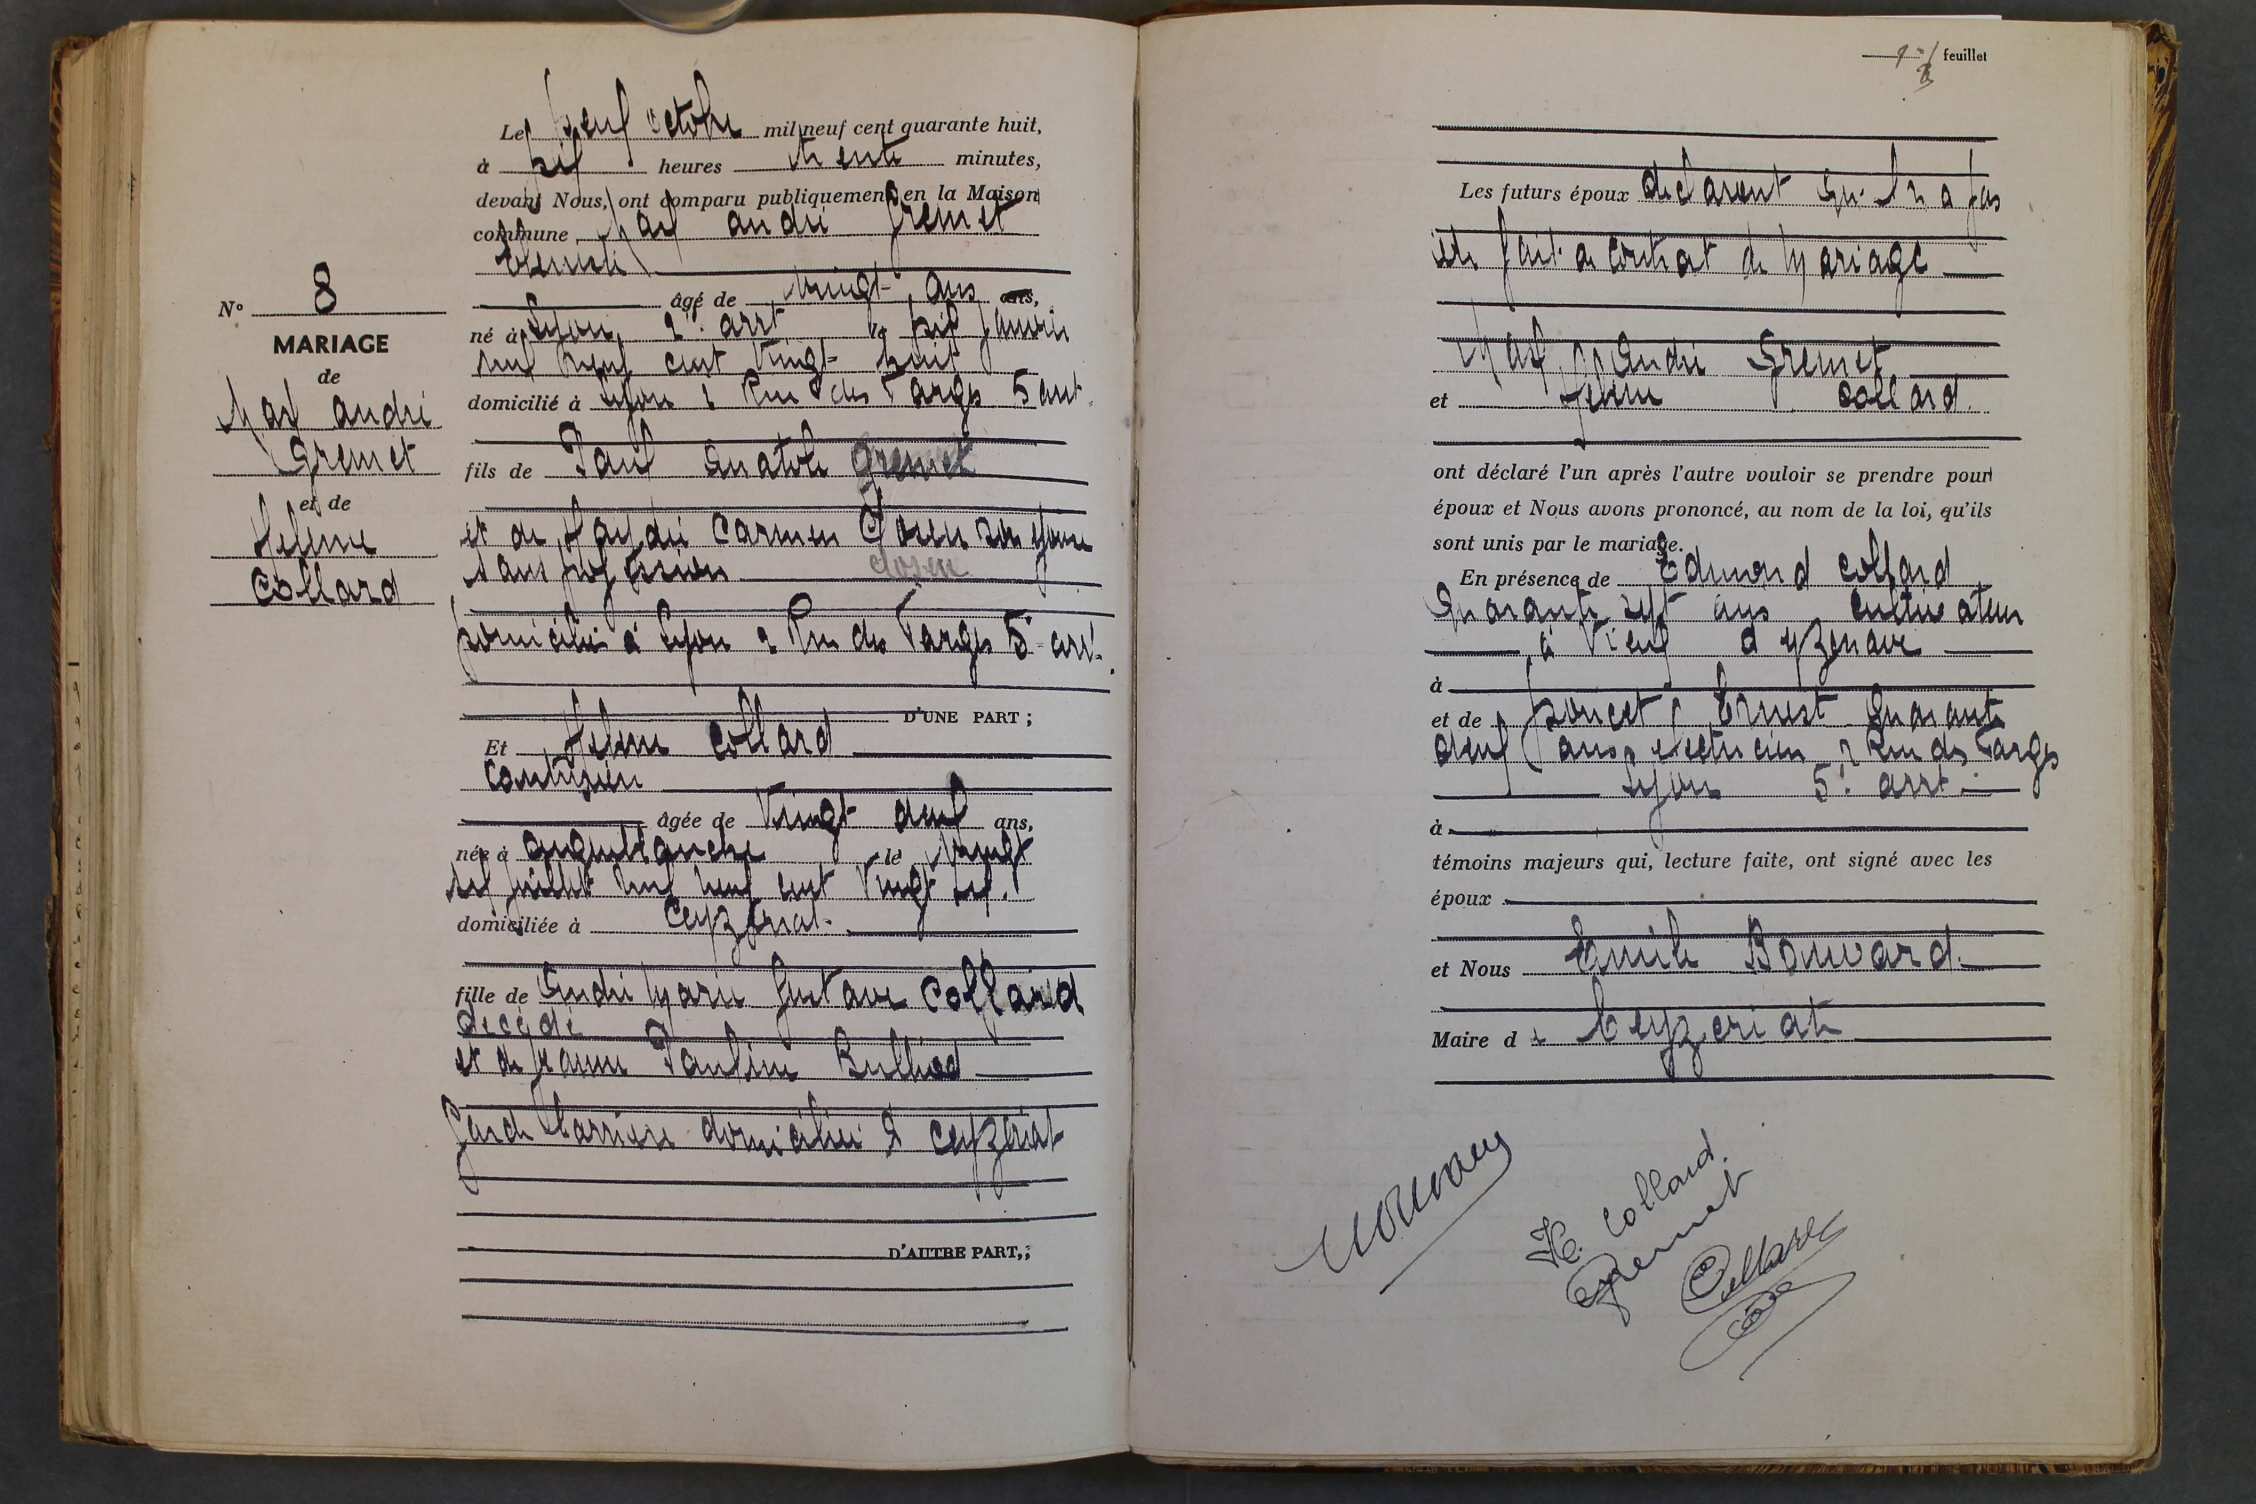 Le neuf octobre mil neuf cent quarante huit,
à dix heures trente minutes,
devant Nous, ont comparu publiquement en la Maison
commune Max andré Gremet
ébeniste
âgé de vingt ans ans,
né à Lyon 2e arrt le dix Janvier
mil neuf cent vingt huit
domicilié à Lyon 2 Rue des Farges 5 arrt.
fils de Paul Anatole Gremet
et de Carmen son épouse
sans profession dosen
domiciliés à Lyon 2 Rue des Farges 5e arrt.
D'UNE PART ;
N° 8
MARIAGE
de
Max andré
Gremet
et de
Hélène
Collard
Et Hélène Collard
Couturière
âgée de Vingt deux ans,
née à aigueblanche le Vingt
six juillet mil neuf cent vingt six.
domiciliée à Ceyzériat.
fille de André Marie Gustave Collard
décédé
et de Jeanne Pauline Bulliod
Garde barrière domiciliée à Ceyzériat
D'AUTRE PART,;
feuillet
Les futurs époux déclarent qu'il n a pas
été fait de contrat de Mariage
Max André Gremet
et Hélène Collard
ont déclaré l'un après l'autre vouloir se prendre pour
époux et Nous avons prononcé, au nom de la loi, qu'ils
sont unis par le mariage.
En présence de Edmond Collard
Quarante sept ans cultivateur
à Vieux d'yzenave
à
et de Poncet Ernest Quarante
deux ans électricien 2 Rue des Farges
Lyon 5e arrt.
à
témoins majeurs qui, lecture faite, ont signé avec les
époux
et Nous Emile Bouvard
Maire de Ceyzeriat
H. Collard.
Gremet
Collard